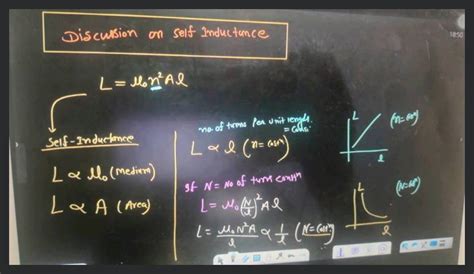 Discussion on Self Inductance
18:50
L = μ₀n²Al
Self-Inductance
L ∝ μ₀ (medium)
L ∝ A (Area)
no. of turns per unit length
= cons.
L ∝ l (n = consᵗ)
If N = No of turn constⁿ
L = μ₀(N/l)²Al
L = μ₀N²A/l ∝ 1/l (N = consᵗ)
L
l
(n = consᵗ)
L
l
(N = consᵗ)